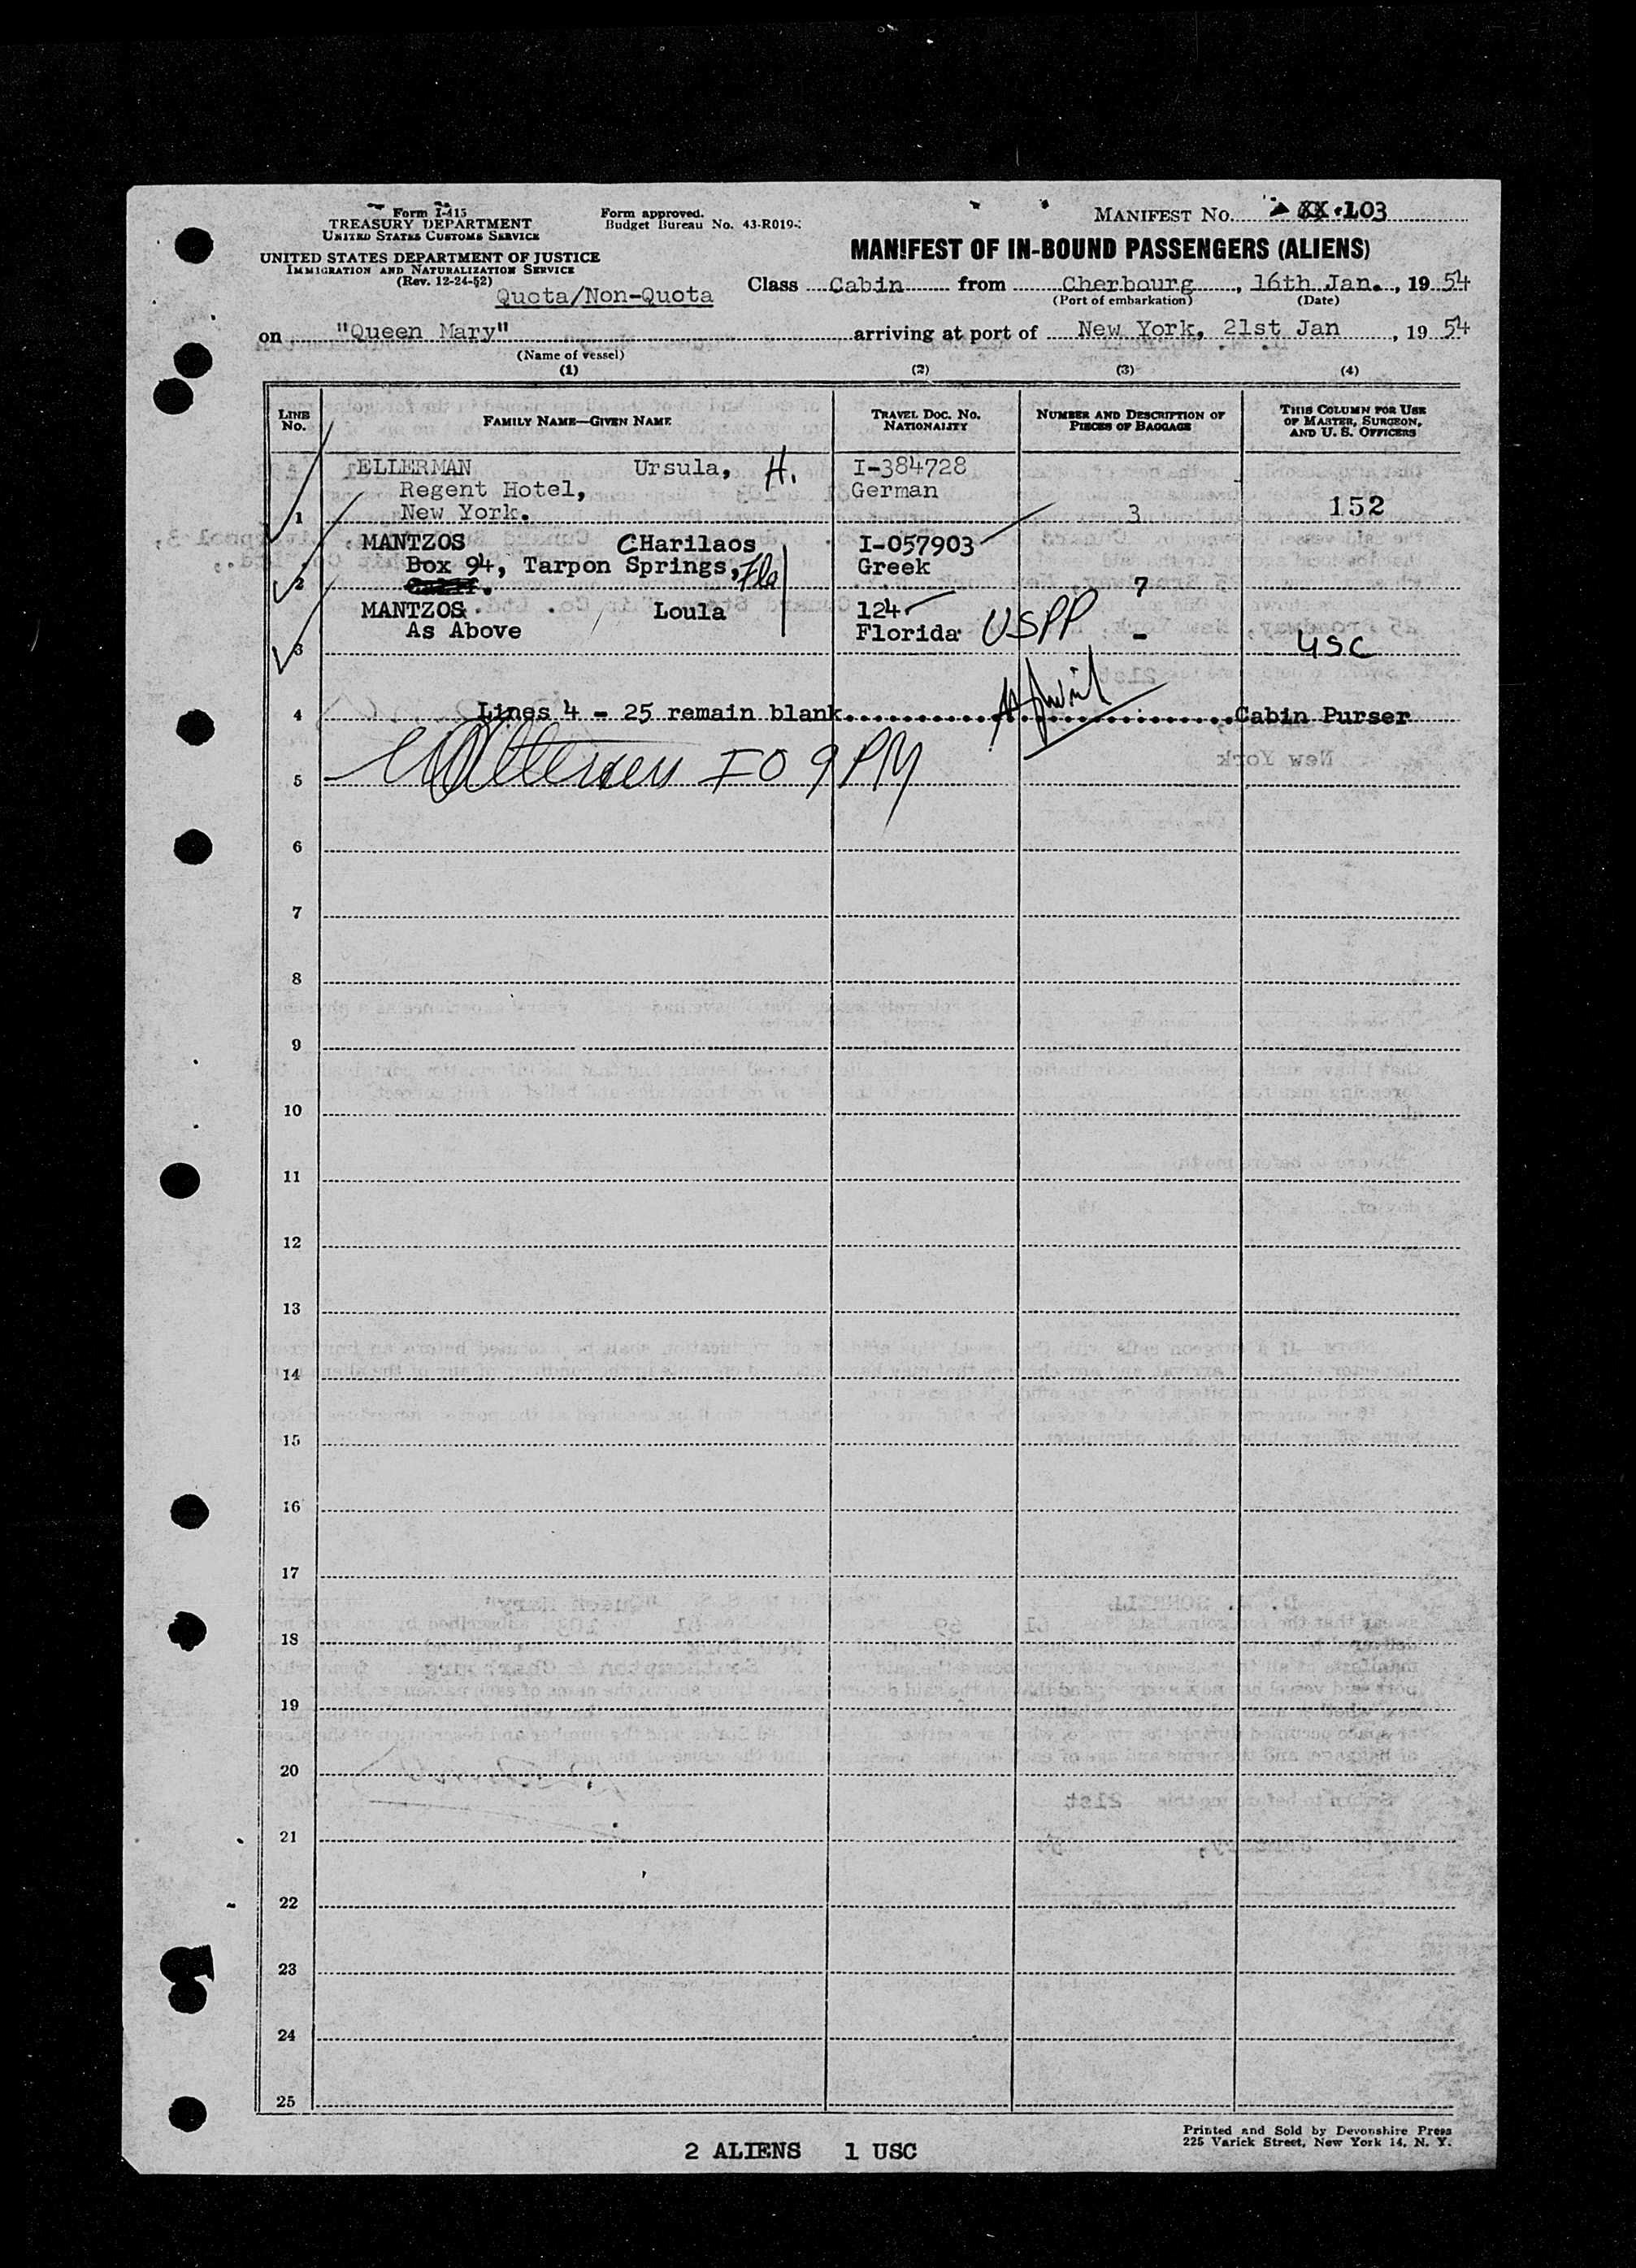 Form I-415
TREASURY DEPARTMENT
UNITED STATES CUSTOMS SERVICE
UNITED STATES DEPARTMENT OF JUSTICE
IMMIGRATION AND NATURALIZATION SERVICE
(Rev. 12-24-52)
Form approved.
Budget Bureau No. 43-R019-
MANIFEST No. XX.103
MANIFEST OF IN-BOUND PASSENGERS (ALIENS)
Quota/Non-Quota
Class Cabin from Cherbourg, 16th Jan., 19 54
(Port of embarkation) (Date)
on "Queen Mary" arriving at port of New York, 21st Jan, 19 54
(Name of vessel)
(1) (2) (3) (4)
LINE No. FAMILY NAME—GIVEN NAME TRAVEL DOC. NO. NATIONALITY NUMBER AND DESCRIPTION OF PIECES OF BAGGAGE THIS COLUMN FOR USE OF MASTER, SURGEON, AND U. S. OFFICERS
ELLERMAN Ursula, H. I-384728
Regent Hotel, German
1 New York. 3 152
MANTZOS CHarilaos I-057903
Box 94, Tarpon Springs, Fla Greek
2 7
MANTZOS. Loula 124
As Above Florida USPP -
3 USC
4 Lines 4 - 25 remain blank Cabin Purser
5 IO 9 PM
6
7
8
9
10
11
12
13
14
15
16
17
18
19
20
21
22
23
24
25
2 ALIENS 1 USC
Printed and Sold by Devonshire Press
225 Varick Street, New York 14, N. Y.